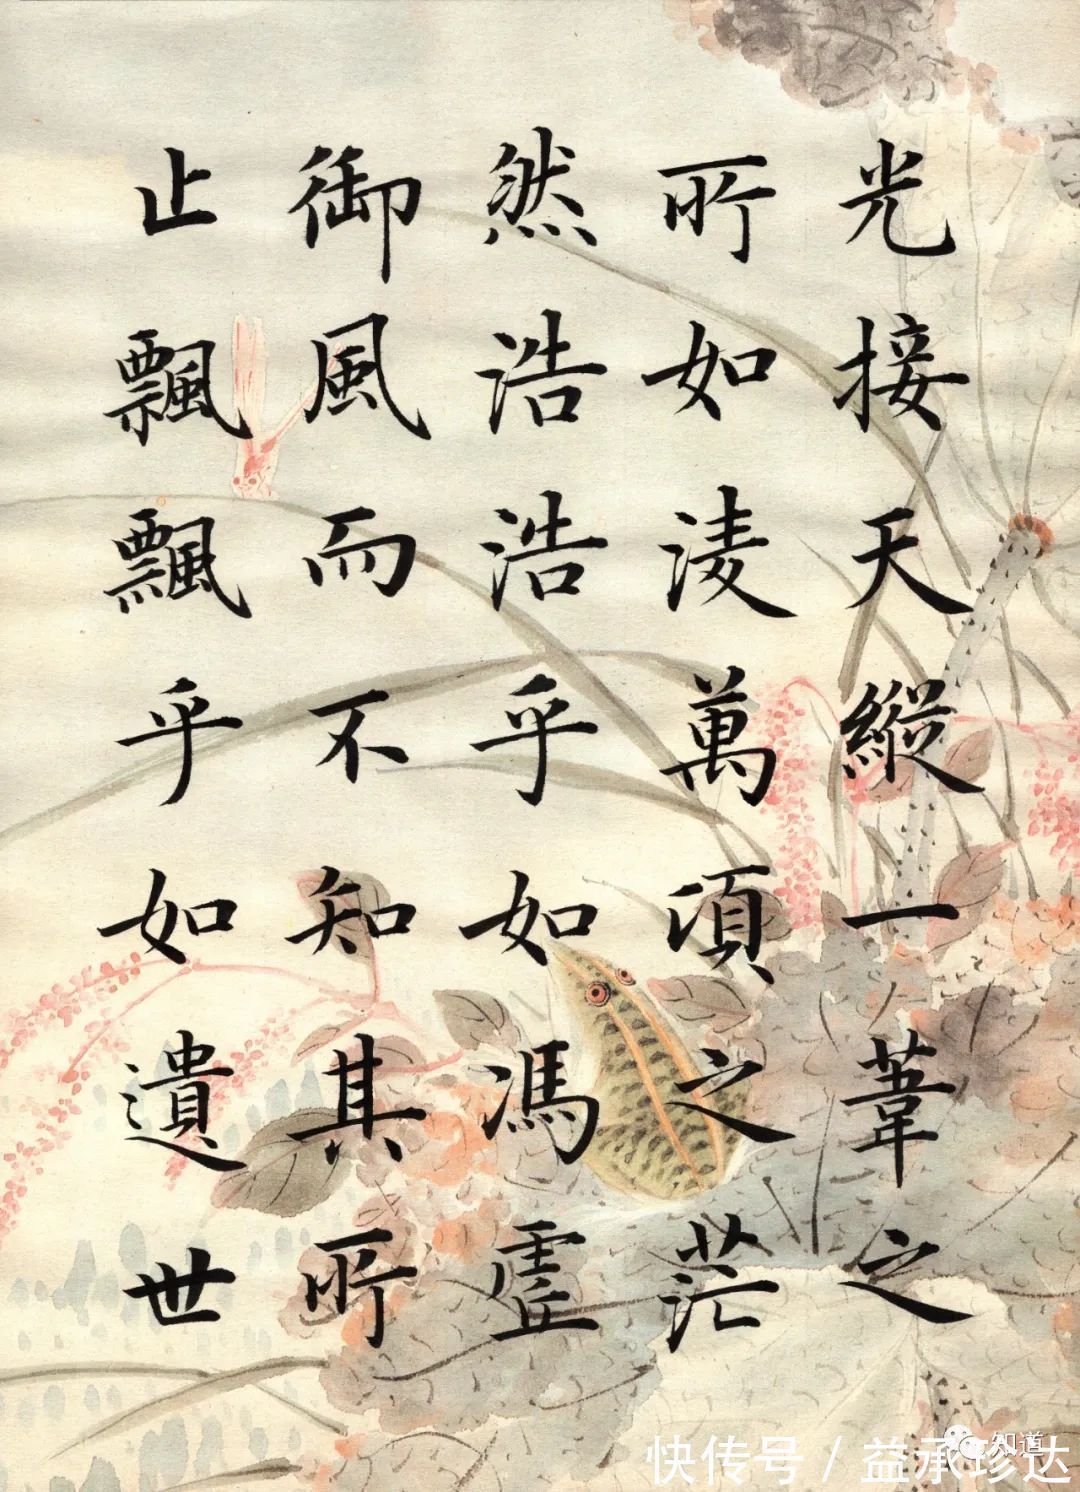 光接天縱一葦之
所如淩萬頃之茫
然浩浩乎如馮虛
御風而不知其所
止飄飄乎如遺世
知道
快传号 / 益承珍达